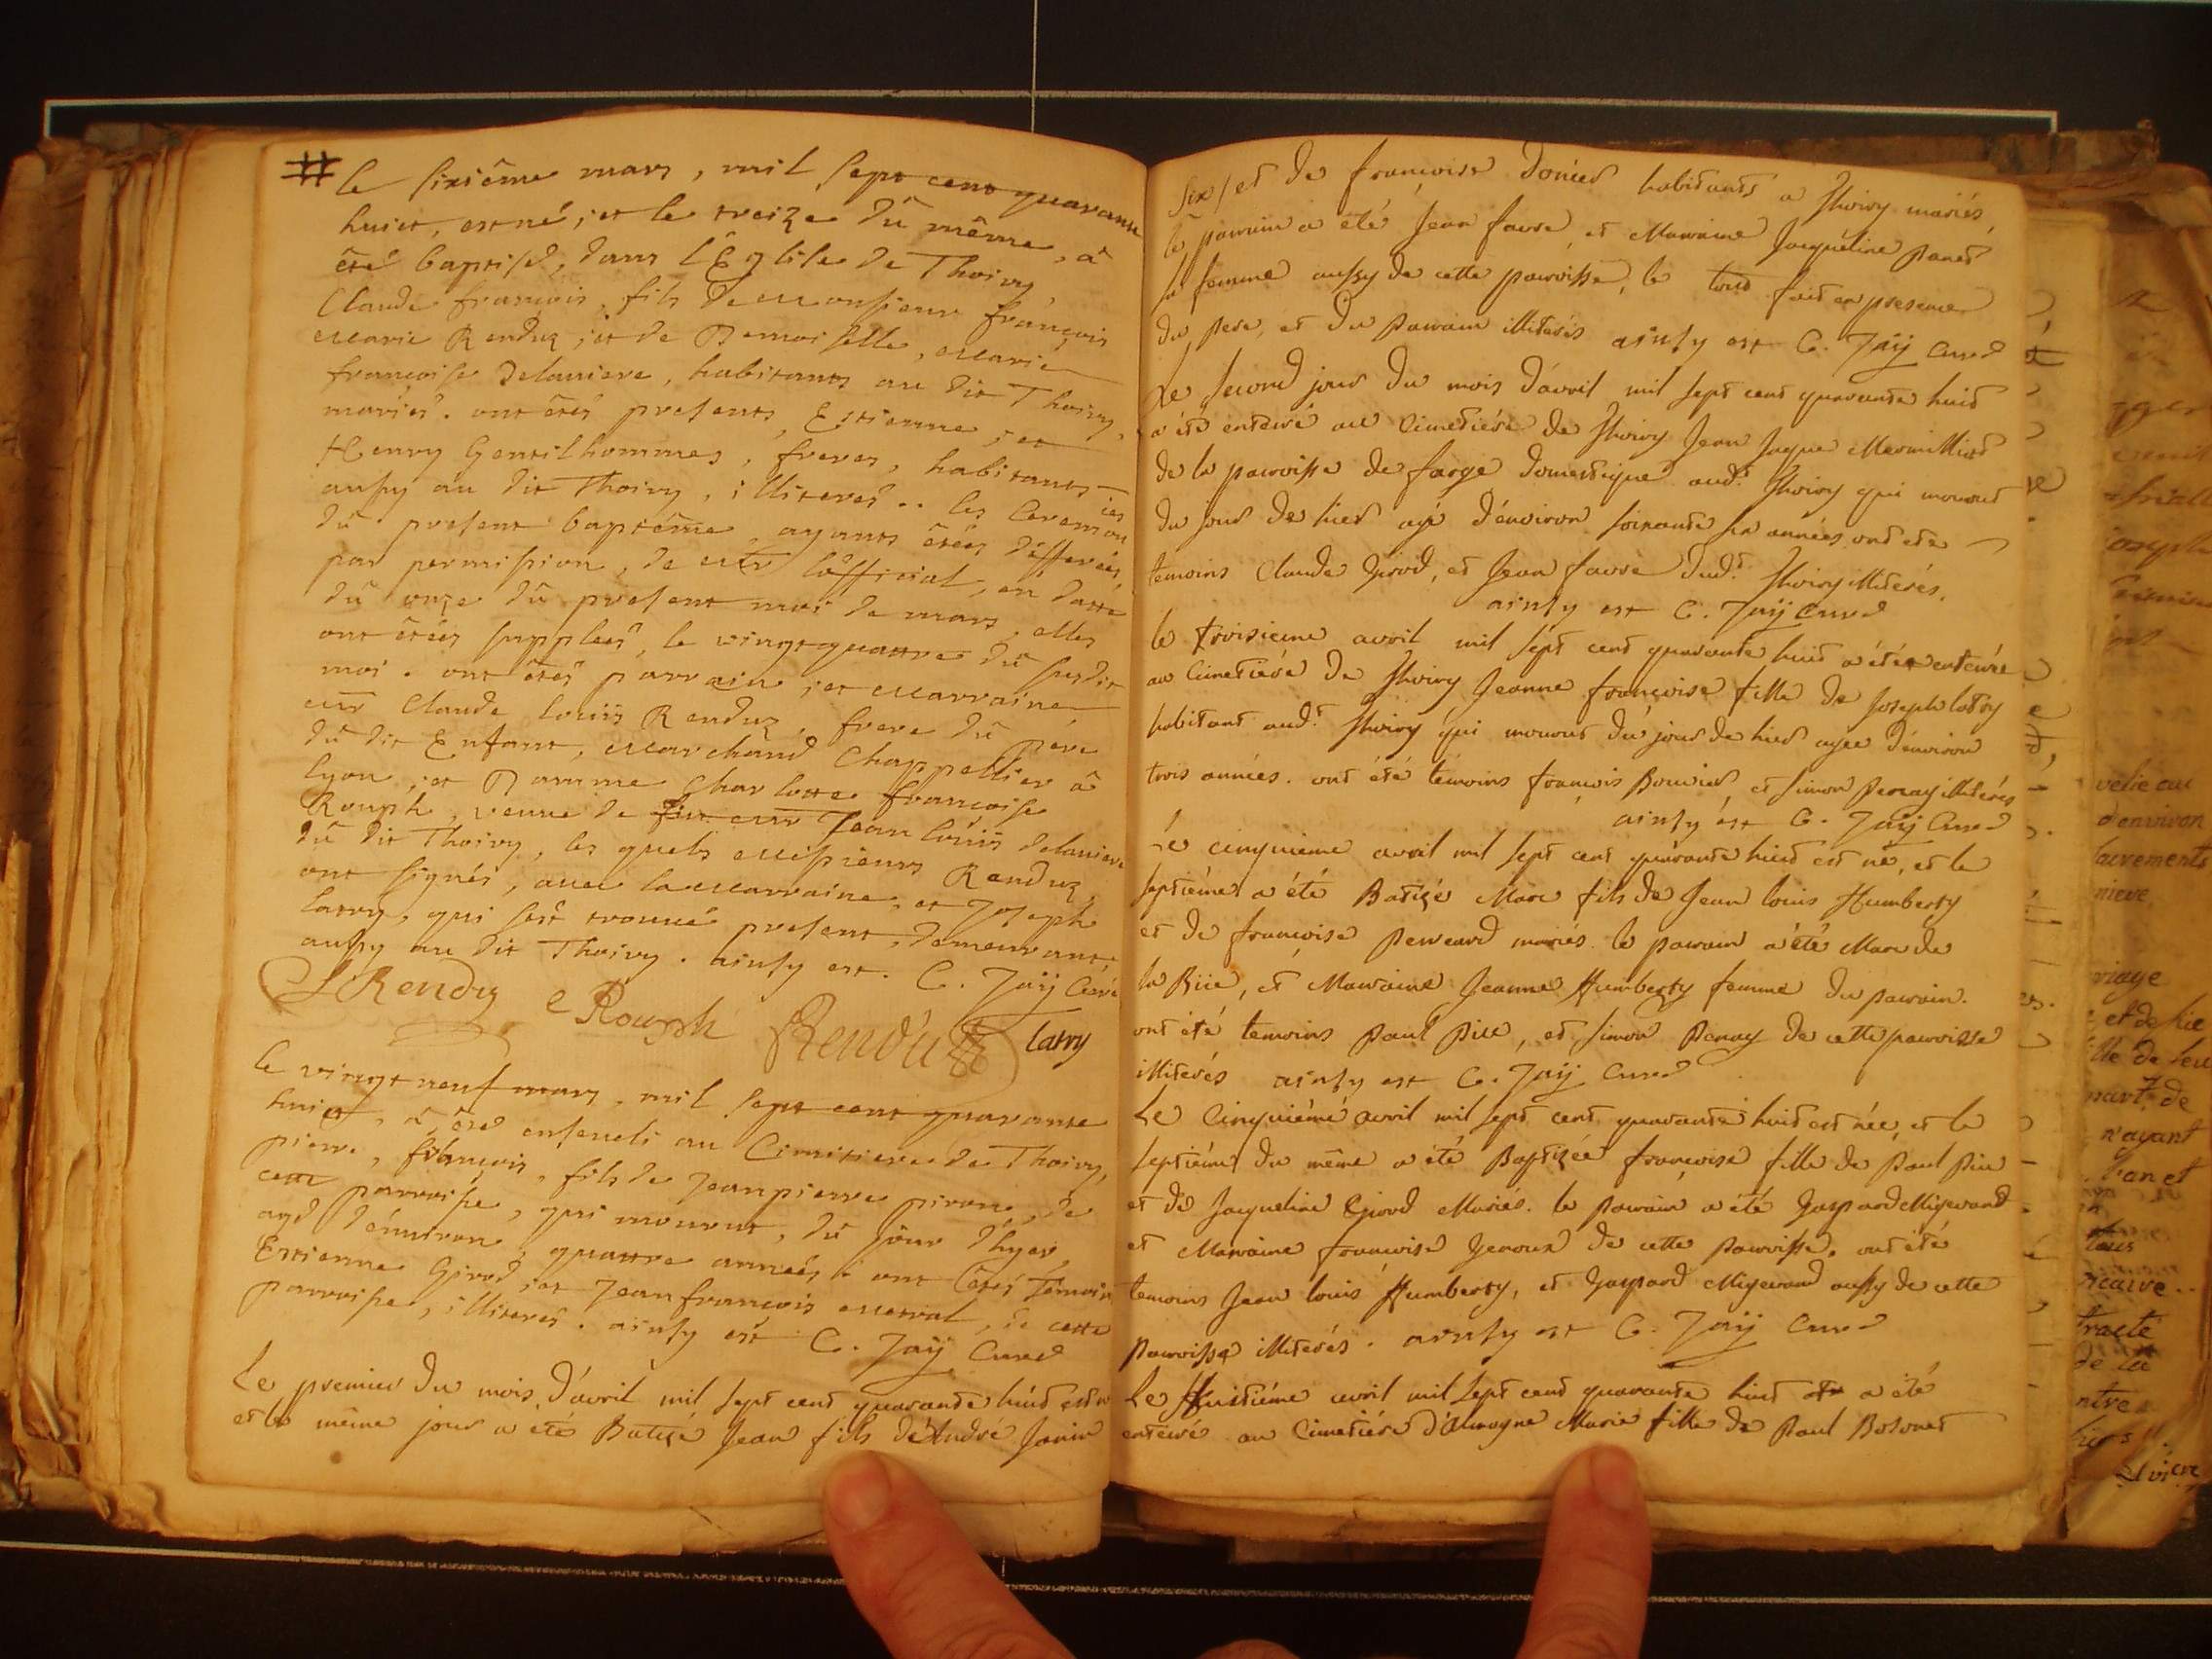 # le sixiême mars, mil sept cent quarante
huict, est né, et le treize dû même, a
êté baptisé, dans l'Eglise de Thoiry,
Claude françois, fils de monsieur françois
marie Renduz, et de Demoiselle, marie
françoise Delaniere, habitants au dit Thoiry,
mariés. ont êtés presents, Estienne, et
Henry Gentilhommes, freres, habitants
aussy au dit Thoiry, illiterés.. les ceremonies
dû present baptême, ayants êtées differées,
par permission, de mr l'official, en datte
dû onze dû present moi de mars, elles
ont êtées supplées, le vingtquattre dû susdit
moi. ont êtés parrain, et marraine,
mr Claude louïs Renduz, frere dû pere
dû dit Enfant, marchand Chappellier â
lyon, et Damme Charlotte françoise
Rouph, veuve de feu mr Jean louïs Delaniere
dû dit Thoiry, les quels messieurs Renduz
ont signés, avec la marraine, et Joseph
latry, qui s'est trouué present, demeurant,
aussy au dit Thoiry. ainsy est. C. Jaÿ Curé
Rendu e Rouph Rendu latry
le vingt neuf mars, mil sept cent quarante
huict, â êté enseueli au Cimitiere de Thoiry,
pierre, françois, fils de Jean pierre piron, de
cette parroisse, qui mourut, dû jour d'hyer,
agé d'enuiron, quattre années. ont êtés témoins
Estienne Girod, et Jean françois mestral, de cette
parroisse, illiterés. ainsy est C. Jaÿ Curé
Le premier du mois d'avril mil sept cent quarante huit est né
et le même jour a été Batizé Jean fils d'André Janin
six / et de françoise Donier habitants a Thoiry mariés,
le parrain a été Jean favre et Marraine Jacqueline Panet
sa femme aussy de cette parroisse, le tout fait en presence
du pere, et du parrain illiterés ainsy est C. Jaÿ Curé
Le second jour du mois d'avril mil sept cent quarante huit
a été enterré au Cimetiére de Thoiry Jean Jaque Marmilliod
de la parroisse de farge domestique aud.t Thoiry qui mourut
du jour de hier agé d'environ soixante six années ont été
temoins Claude Girod, et Jean favre dud.t Thoiry illiterés.
ainsy est C. Jaÿ Curé
le troisieme avril mil sept cent quarante huit a été enterrée
au Cimetiére de Thoiry Jeanne françoise fille de Joseph latry
habitant aud.t Thoiry qui mourut du jour de hier agée d'environ
trois années. ont été témoins françois Bouvier et simon Pernay illiterés
ainsy est C. Jaÿ Curé
Le cinquieme avril mil sept cent quarante huit est né, et le
septiéme a été Batizé Marc fils de Jean louis Humberty
et de françoise mariés. le parrain a été Marc de
la Rüe, et Marraine Jeanne Humberty femme du parrain.
ont été temoins Paul Piu, et simon Pernay de cette parroisse
illiterés ainsy est C. Jaÿ Curé
Le Cinquiéme avril mil sept cent quarante huit est née, et le
septiéme du même a été Baptizée françoise fille de Paul Piu
et de Jacqueline Girod Mariés. le parrain a été Gaspard Migerand
et Marraine françoise Genoux de cette Parroisse. ont été
temoins Jean louis Humberty, et Gaspard Migerand aussy de cette
Parroisse illiterés. ainsy est C. Jaÿ Curé
Le Huitiéme avril mil sept cent quarante huit a été
enterré au Cimetiére d'Alemogne Marie fille de Paul Bosonet